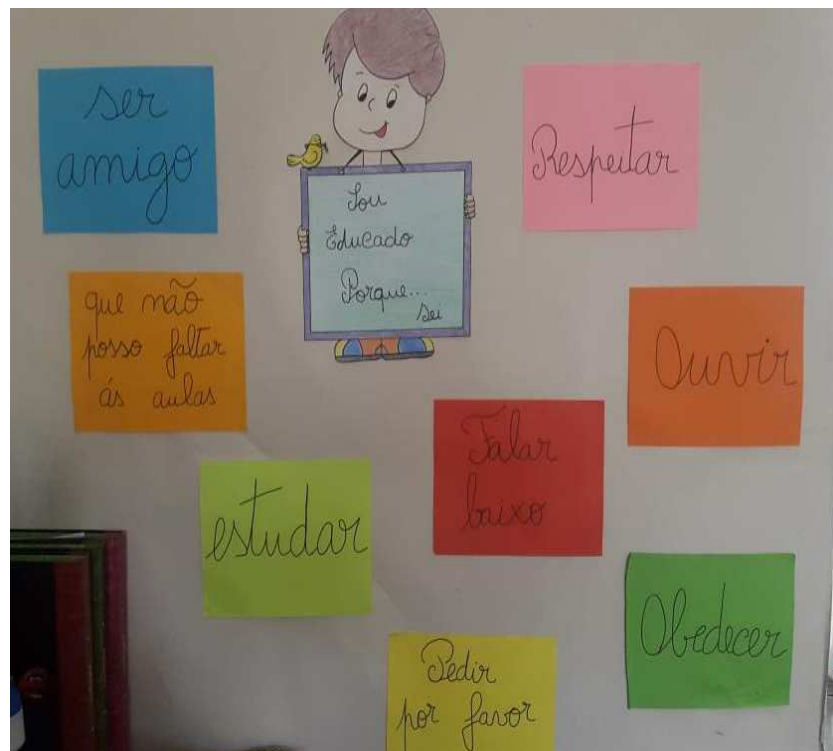 Sou
Educado
Porque...
sei
ser
amigo
Respeitar
que não
posso faltar
ás aulas
Ouvir
Falar
baixo
estudar
Obedecer
Pedir
por favor